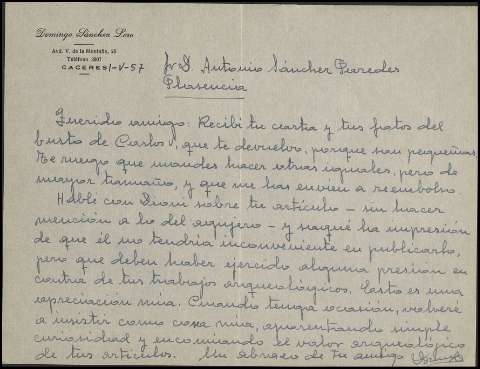 Domingo Sánchez Loro
Avd. V. de la Montaña, 28
Teléfono 1807
CACERES 1-V-57
Sr. D. Antonio Sánchez Paredes
Plasencia
Querido amigo: Recibí tu carta y tus fotos del
busto de Carlos V, que te devuelvo, porque son pequeñas.
Te ruego que mandes hacer otras iguales, pero de
mayor tamaño, y que me las envien a reembolso.
Hablé con Dioni sobre tu artículo - sin hacer
mención a lo del agujero - y saqué la impresión
de que él no tendría inconveniente en publicarlo,
pero que deben haber ejercido alguna presion en
contra de tus trabajos arqueológicos. Esto es una
apreciación mia. Cuando tenga ocasión, volveré
a insistir como cosa mia, aparentando simple
curiosidad y encomiando el valor arqueológico
de tus articulos. Un abrazo de tu amigo